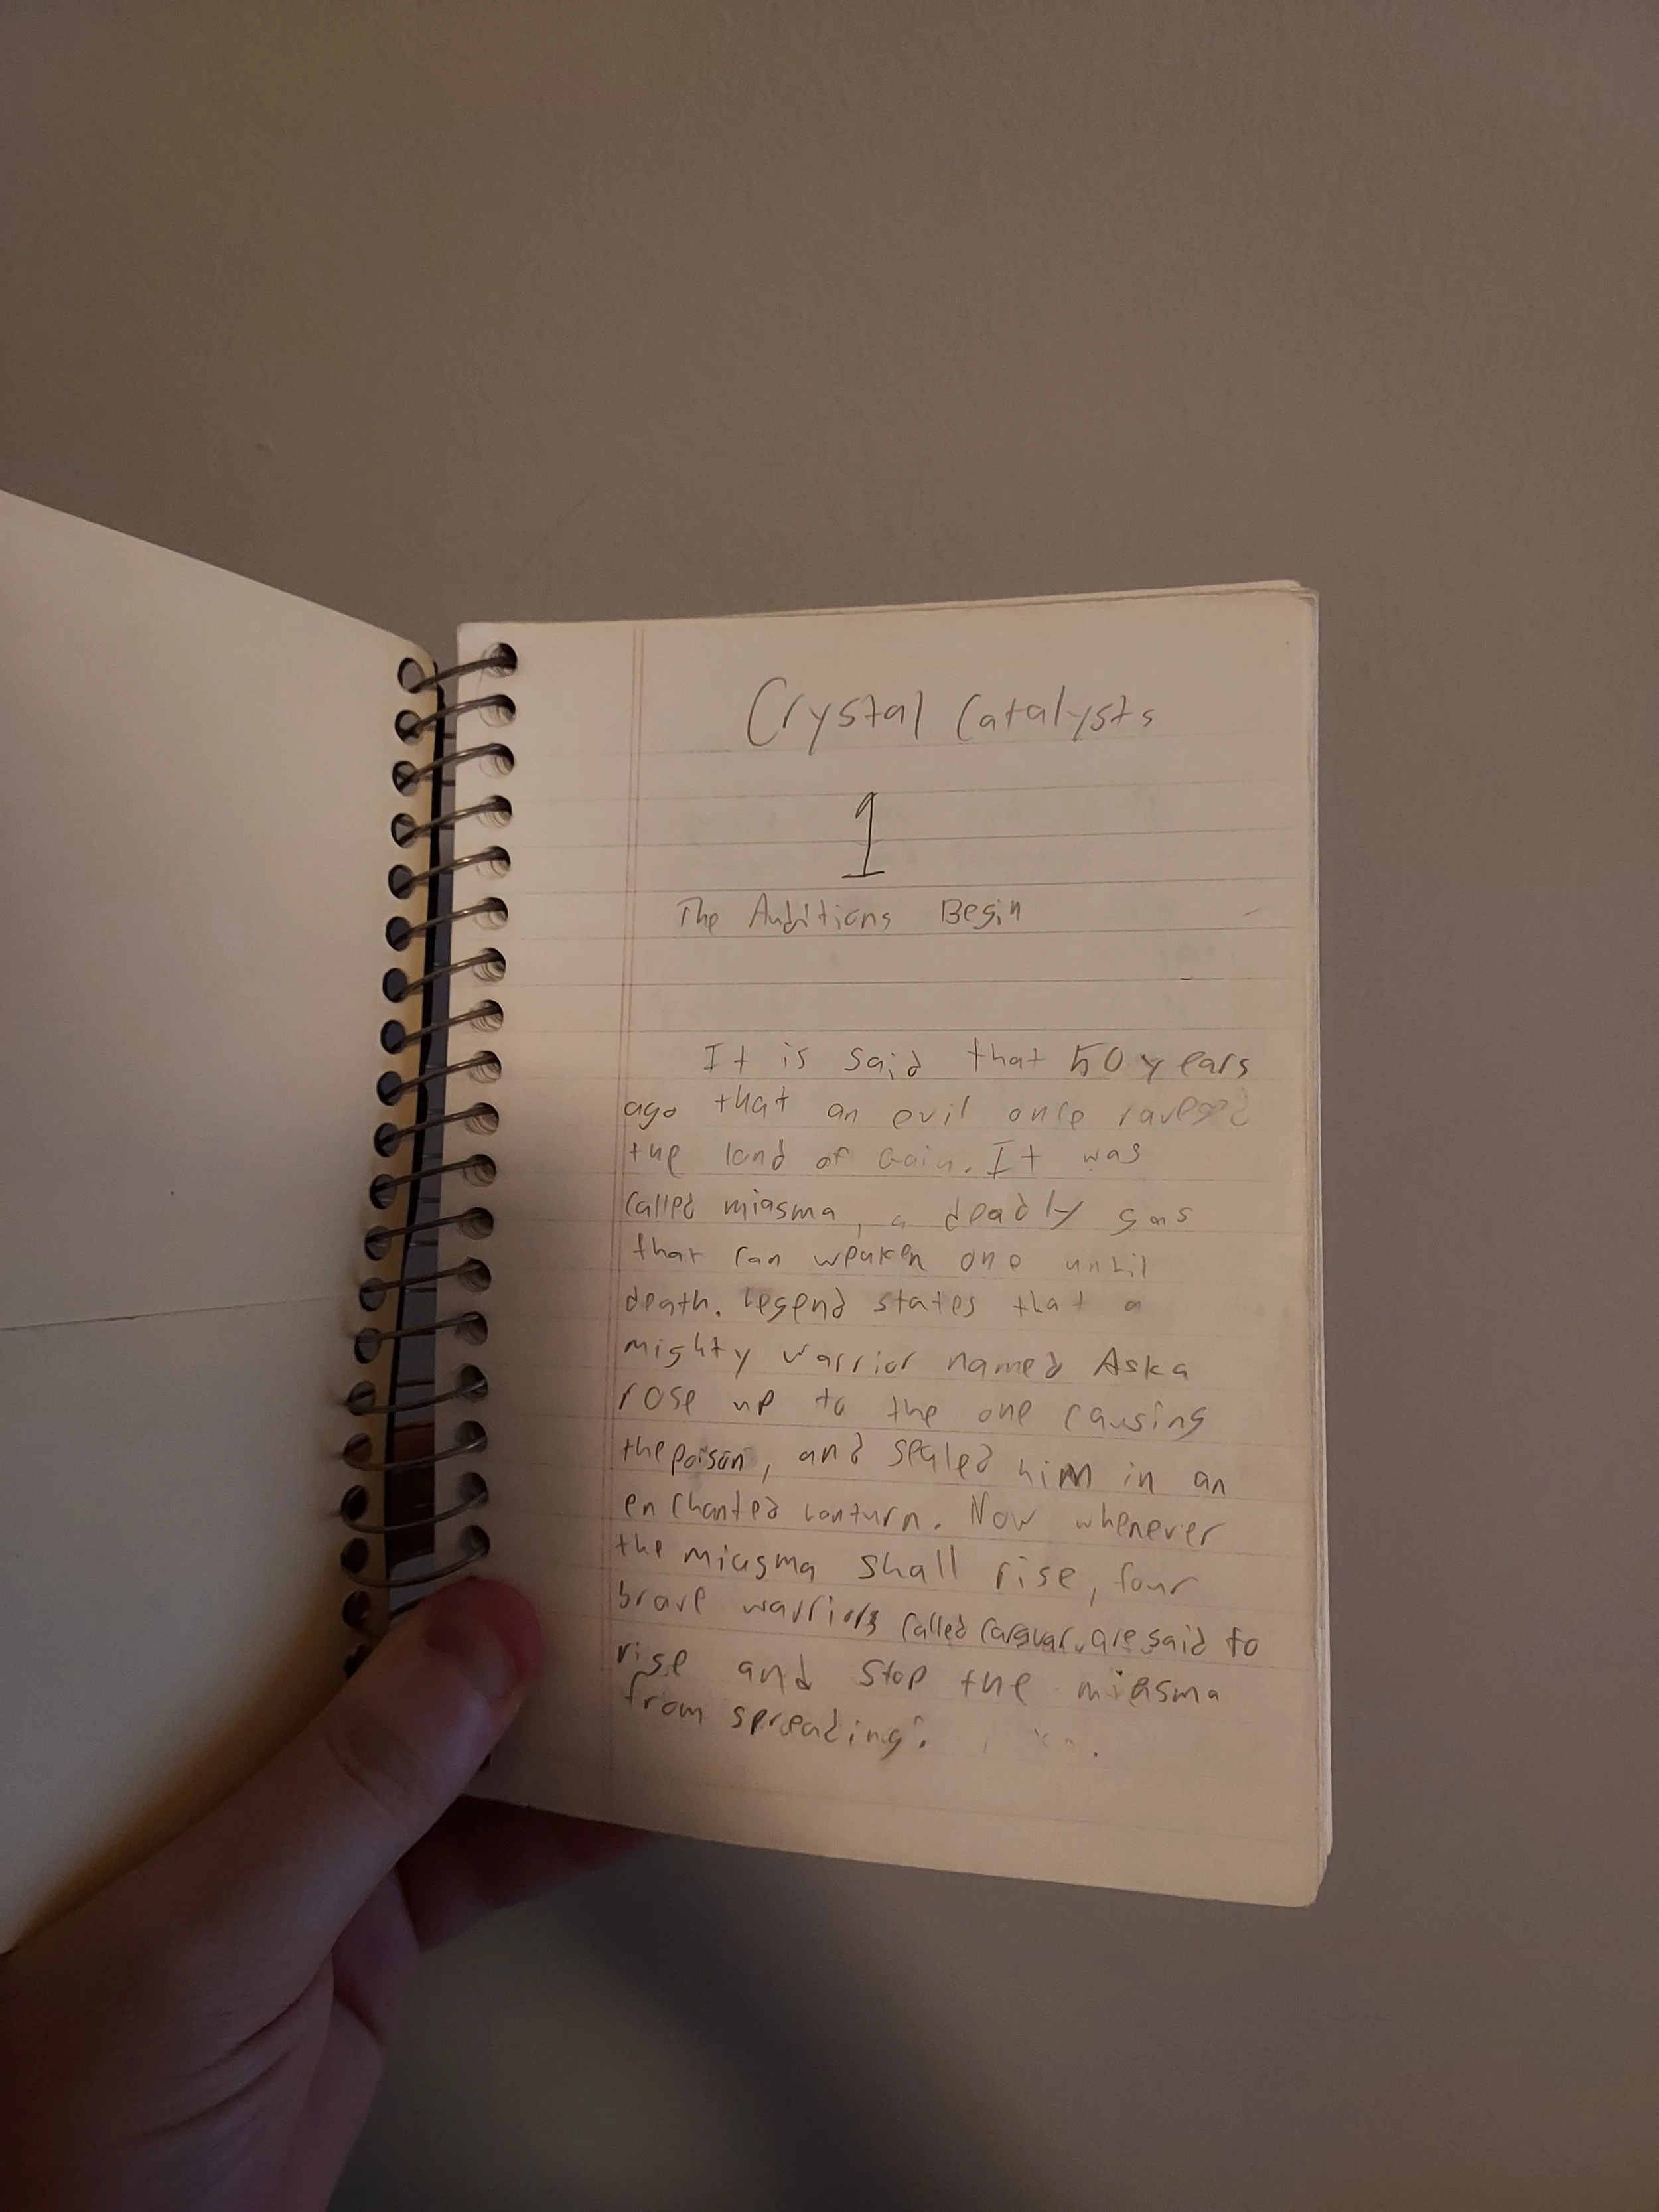 Crystal Catalysts
1
The Auditions Begin
It is said that 50 years
ago that an evil once
the land of Gaia. It was
called miasma, a deadly gas
that can weaken one until
death. Legend states that a
mighty warrior named Aska
rose up to the one causing
the poison, and sealed him in an
enchanted lanturn. Now whenever
the miasma shall rise, four
brave warriors called are said to
rise and stop the miasma
from spreading.